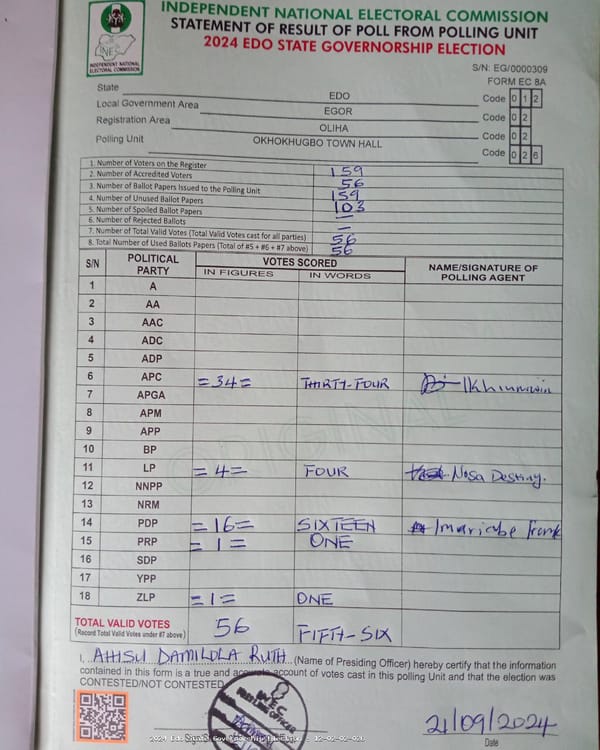 INDEPENDENT NATIONAL ELECTORAL COMMISSION
STATEMENT OF RESULT OF POLL FROM POLLING UNIT
2024 EDO STATE GOVERNORSHIP ELECTION
INEC
INDEPENDENT NATIONAL
ELECTORAL COMMISSION
S/N: EG/0000309
FORM EC 8A
State EDO Code 0 1 2
Local Government Area EGOR Code 0 2
Registration Area OLIHA Code 0 2
Polling Unit OKHOKHUGBO TOWN HALL Code 0 2 6
1. Number of Voters on the Register 159
2. Number of Accredited Voters 56
3. Number of Ballot Papers Issued to the Polling Unit 159
4. Number of Unused Ballot Papers 103
5. Number of Spoiled Ballot Papers —
6. Number of Rejected Ballots —
7. Number of Total Valid Votes (Total Valid Votes cast for all parties) 56
8. Total Number of Used Ballots Papers (Total of #5 + #6 + #7 above) 56
S/N POLITICAL PARTY VOTES SCORED NAME/SIGNATURE OF POLLING AGENT
IN FIGURES IN WORDS
1 A
2 AA
3 AAC
4 ADC
5 ADP
6 APC =34= THIRTY-FOUR
7 APGA
8 APM
9 APP
10 BP
11 LP =4= FOUR Nosa Destiny.
12 NNPP
13 NRM
14 PDP =16= SIXTEEN Frank
15 PRP =1= ONE
16 SDP
17 YPP
18 ZLP =1= ONE
TOTAL VALID VOTES 56 FIFTH-SIX
(Record Total Valid Votes under #7 above)
I, AHISU DAMILOLA RUTH (Name of Presiding Officer) hereby certify that the information
contained in this form is a true and accurate account of votes cast in this polling Unit and that the election was
CONTESTED/NOT CONTESTED
INEC
PRESIDING OFFICER
21/09/2024
Date